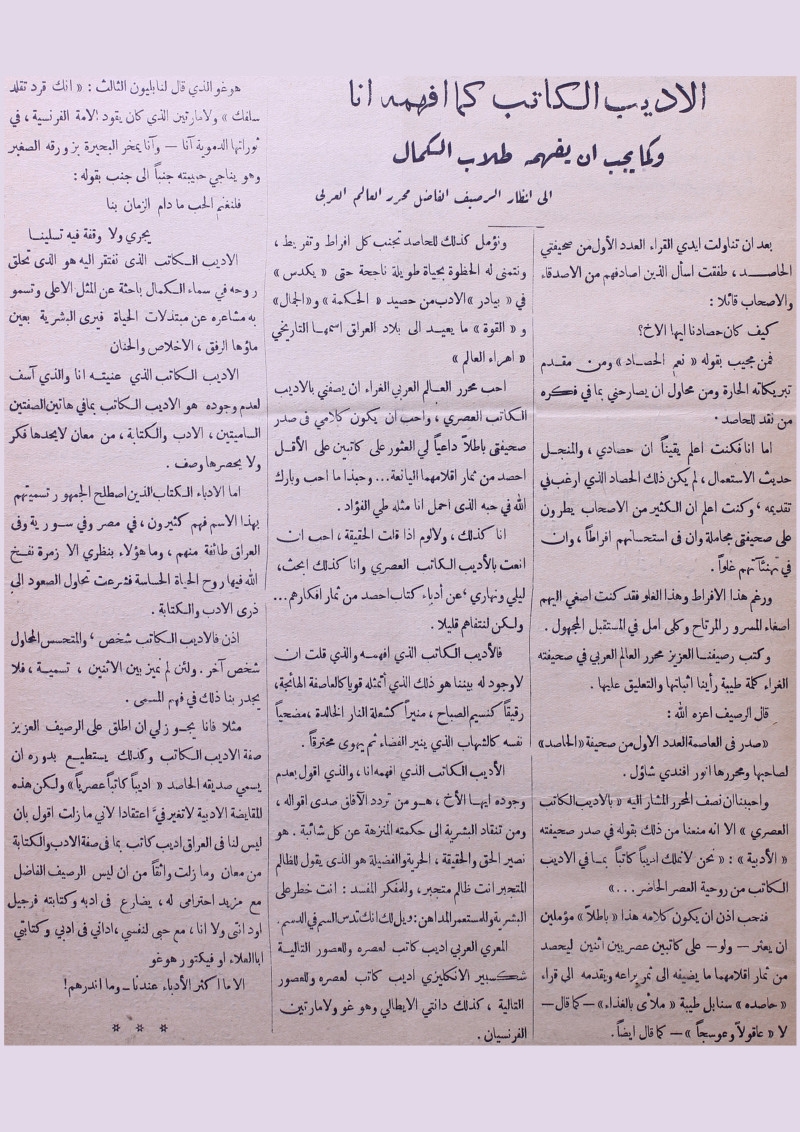 الاديب الكاتب كما افهمه انا
وكما يجب ان يفهمه طلاب الكمال
الى انظار الرصيف الفاضل محرر العالم العربي
بعد ان تناولت ايدي القراء العدد الأول من صحيفتي
الحاصد ، طفقت اسأل الذين اصادفهم من الاصدقاء
والاصحاب قائلا :
كيف كان حصادنا ايها الاخ ؟
فمن مجيب بقوله « نعم الحصاد » ومن مقدم
تبريكاته الحارة ومن محاول ان يصارحني بما في فكره
من نقد للحاصد .
اما انا فكنت اعلم يقيناً ان حصادي ، والمنجل
حديث الاستعمال ، لم يكن ذلك الحصاد الذي ارغب في
تقديمه ، وكنت اعلم ان الكثير من الاصحاب يطرون
على صحيفتي مجاملة وان فى استحسانهم افراطاً ، وان
في تهنئآتهم غلواً .
ورغم هذا الافراط وهذا الغلو فقد كنت اصغي اليهم
اصغاء المسرور المرتاح وكلى امل في المستقبل المجهول .
وكتب رصيفنا العزيز محرر العالم العربي في صحيفته
الغراء كلمة طيبة رأينا اثباتها والتعليق عليها .
قال الرصيف اعزه الله :
«صدر فى العاصمة العدد الاول من صحيفة «الحاصد»
لصاحبها ومحررها انور افندي شاؤل .
واحببنا ان نصف المحرر المشار اليه « بالاديب الكاتب
العصري » الا انه منعنا من ذلك بقوله في صدر صحيفته
« الأدبية » : « نحن لا نملك اديباً كاتباً بما في الاديب
الكاتب من روحية العصر الحاضر ... »
فنحب اذن ان يكون كلامه هذا « باطلاً » مؤملين
ان يعثر — ولو — على كاتبين عصريين اثنين ليحصد
من ثمار اقلامهما ما يضيفه الى ثمر يراعه ويقدمه الى قراء
« حاصده » سنابل طيبة « ملأى بالغذاء » — كما قال —
لا « عاقولاً وعوسجاً » — كما قال ايضاً .
ونؤمل كذلك للحاصد تجنب كل افراط وتفريط ،
ونتمنى له الحظوة بحياة طويلة ناجحة حتى « يكدس »
في « بيادر » الادب من حصيد « الحكمة » و« الجمال »
و « القوة » ما يعيد الى بلاد العراق اسمها التاريخي
« اهراء العالم »
احب محرر العالم العربي الغراء ان يصفني بالاديب
الكاتب العصري ، واحب ان يكون كلامي فى صدر
صحيفتي باطلاً داعياً لي العثور على كاتبين على الأقل
احصد من ثمار اقلامهما اليانعة ... وحبذا ما احب وبارك
الله في حبه الذى احمل انا مثله طي الفؤاد .
انا كذلك ، ولا لوم اذا قلت الحقيقة ، احب ان
انعت بالأديب الكاتب العصري وانا كذلك ابحث ،
ليلي ونهاري ، عن أدباء كتاب احصد من ثمار افكارهم ...
ولكن لنتفاهم قليلا .
فالأديب الكاتب الذي افهمه والذي قلت ان
لا وجود له بيننا هو ذلك الذي أتمثله قويا كالعاصفة الهائجة ،
رقيقاً كنسيم الصباح ، منيراً كشعلة النار الخالدة ، مضحياً
نفسه كالشهاب الذي ينير الفضاء ثم يهوى محترقاً .
الأديب الكاتب الذي افهمه انا ، والذي اقول بعدم
وجوده ايها الأخ ، هو من تردد الآفاق صدى اقواله ،
ومن تنقاد البشرية الى حكمته المنزهة عن كل شائبة . هو
نصير الحق والحقيقة ، الحرية والفضيلة هو الذى يقول للظالم
المتجبر انت ظالم متجبر ، وللمفكر المفسد : انت خطر على
البشرية وللمستعمر المداهن : ويل لك انك تدس السم في الدسم .
المعري العربي اديب كاتب لعصره وللعصور التالية
شكسبير الانكليزي اديب كاتب لعصره وللعصور
التالية ، كذلك دانتي الايطالي وهوغو ولامارتين
الفرنسيان .
هوغو الذي قال لنابليون الثالث : « انك قرد تقلد
سلفك » ولامارتين الذي كان يقود الامة الفرنسية ، في
ثوراتها الدموية آنا — وآنا يمخر البحيرة بزورقه الصغير
وهو يناجي حبيبته جنباً الى جنب بقوله :
فلنغنم الحب ما دام الزمان بنا
يجري ولا وقفة فيه تسلينا
الاديب الكاتب الذى نفتقر اليه هو الذى تحلق
روحه في سماء الكمال باحثة عن المثل الاعلى وتسمو
به مشاعره عن مبتذلات الحياة فيرى البشرية بعين
ماؤها الرفق ، الاخلاص والحنان
الاديب الكاتب الذي عنيته انا والذي آسف
لعدم وجوده هو الاديب الكاتب بما في هاتين الصفتين
الساميتين ، الادب والكتابة ، من معان لا يحدها فكر
ولا يحصرها وصف .
اما الأدباء الكتاب الذين اصطلح الجمهور تسميتهم
بهذا الاسم فهم كثيرون ، في مصر وفي سورية وفى
العراق طائفة منهم ، وما هؤلاء بنظري الا زمرة نفخ
الله فيها روح الحياة الحساسة فشرعت تحاول الصعود الى
ذرى الادب والكتابة .
اذن فالاديب الكاتب شخص ، والمتحسس المحاول
شخص آخر . ولئن لم نميز بين الاثنين ، تسمية ، فلا
يجدر بنا ذلك في فهم المسمى .
مثلا فانا يجوز لي ان اطلق على الرصيف العزيز
صفة الاديب الكاتب وكذلك يستطيع بدوره ان
يسمي صديقه الحاصد « اديباً كاتباً عصرياً » ولكن هذه
المقايضة الادبية لا تغير فيّ اعتقادا لاني ما زلت اقول بان
ليس لنا فى العراق اديب كاتب بما فى صفة الادب والكتابة
من معان وما زلت واثقاً من ان ليس الرصيف الفاضل
مع مزيد احترامي له ، يضارع فى ادبه وكتابته فرجيل
او دانتى ولا انا ، مع حبى لنفسي ، اداني فى ادبي وكتابتي
ابا العلاء او فيكتور هوغو
الا ما اكثر الأدباء عندنا ـ وما اندرهم !
* * *